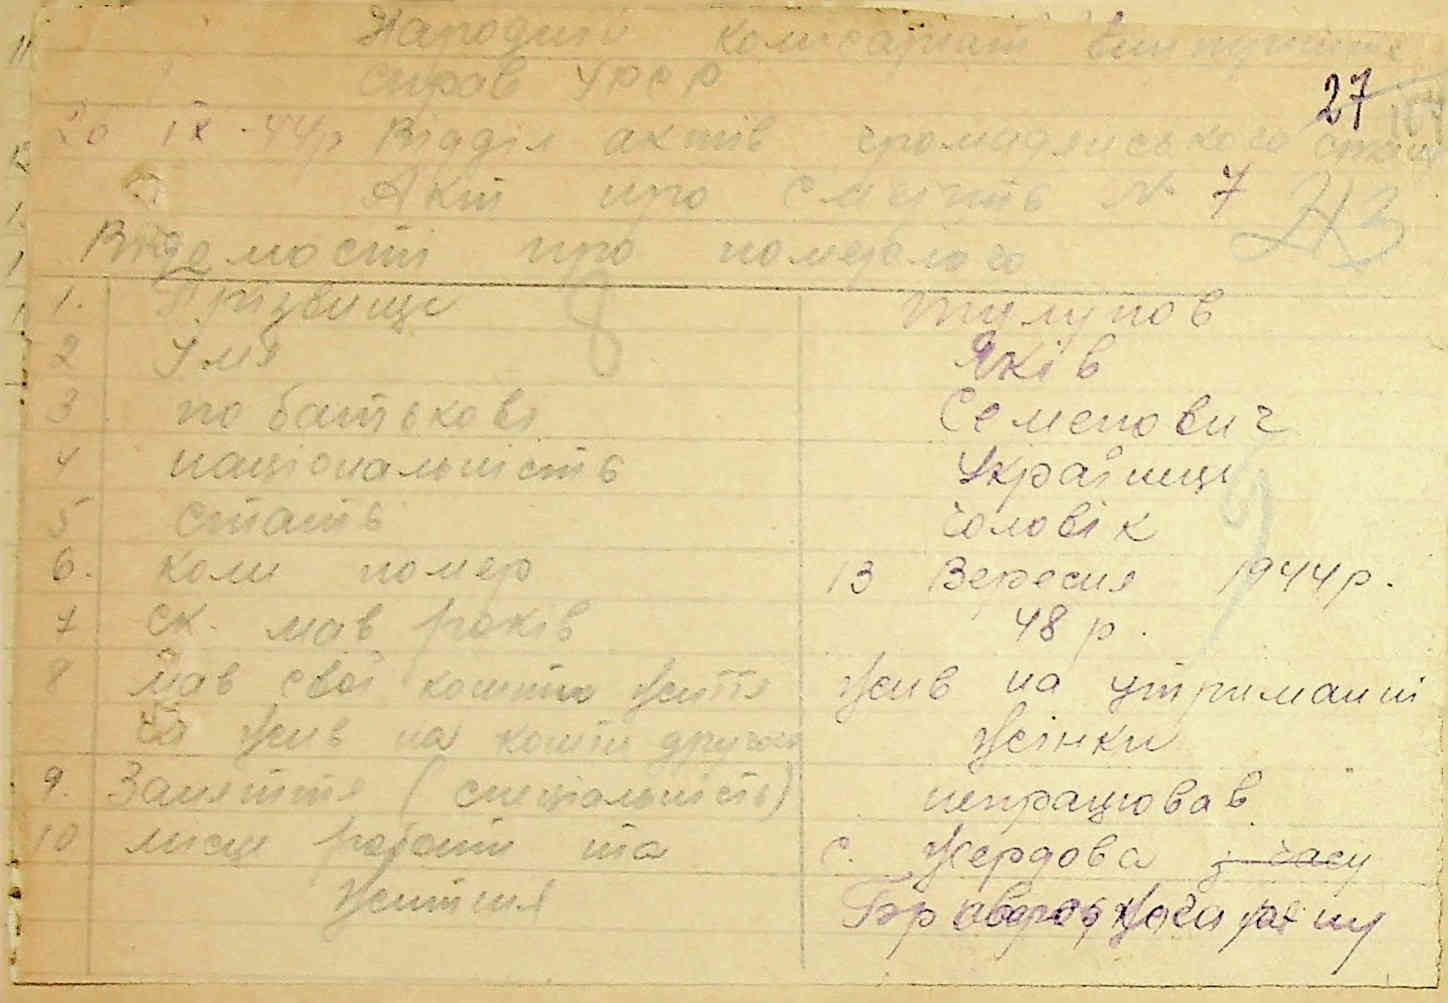 Народний комісаріат Внутрішніх
справ УРСР
27
20 IX 44р Відділ актів громадянського стану
Акт про смерть № 7
Відомості про померлого
1. Прізвище Тулупов
2 Умя Яків
3 по батькові Семенович
4 національність Українець
5 стать чоловік
6. коли помер 13 Вересня 1944р.
7 ск. мав років 48 р.
8 мав свої кошти життя Жив на утриманні
чи жив на кошти другого Жінки
9. Заняття (спеціальність) непрацював
10 місце роботи та с. Жердова з часу
життя